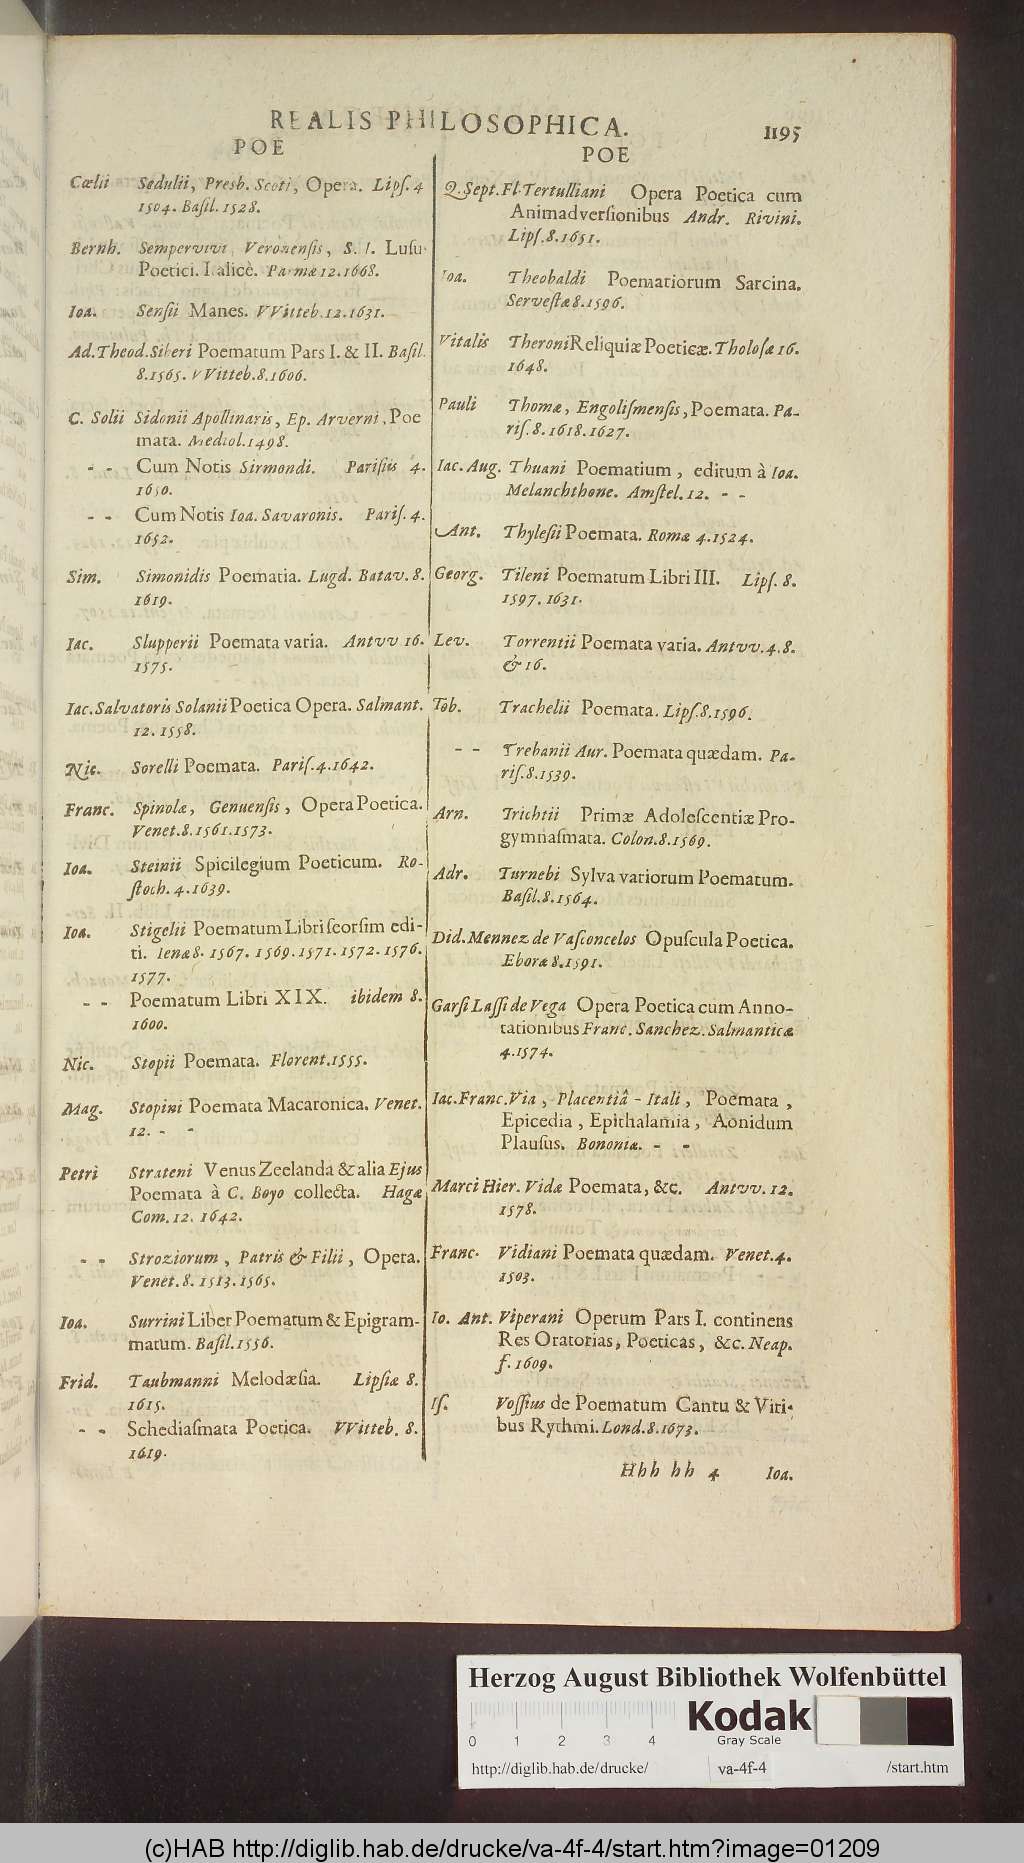 REALIS PHILOSOPHICA.
1195
POE
Cœlii Sedulii, Presb. Scoti, Opera. Lipſ. 4
1504. Baſil. 1528.
Bernh. Sempervivi, Veronenſis, S. I. Luſu
Poetici. Italicè. Parmæ 12. 1668.
Ioa. Senſii Manes. VVitteb. 12. 1631.
Ad. Theod. Siberi Poematum Pars I. & II. Baſil.
8. 1565. VVitteb. 8. 1606.
C. Solii Sidonii Apollinaris, Ep. Arverni, Poe
mata. Mediol. 1498.
- - Cum Notis Sirmondi. Pariſiis 4.
- - Cum Notis Ioa. Savaronis. Pariſ. 4.
1652.
Sim. Simonidis Poematia. Lugd. Batav. 8.
1619.
Iac. Slupperii Poemata varia. Antvv 16.
1575.
Iac. Salvatoris Solanii Poetica Opera. Salmant.
12. 1558.
Nic. Sorelli Poemata. Pariſ. 4. 1642.
Franc. Spinolæ, Genuenſis, Opera Poetica.
Venet. 8. 1561. 1573.
Ioa. Steinii Spicilegium Poeticum. Ro-
ſtoch. 4. 1639.
Ioa. Stigelii Poematum Libri ſeorſim edi-
ti. Ienæ 8. 1567. 1569. 1571. 1572. 1576.
1577.
- - Poematum Libri XIX. ibidem 8.
1600.
Nic. Stopii Poemata. Florent. 1555.
Mag. Stopini Poemata Macaronica. Venet.
12. - -
Petri Strateni Venus Zeelanda & alia Ejus
Poemata à C. Boyo collecta. Hagæ
Com. 12. 1642.
- - Stroziorum, Patris & Filii, Opera.
Venet. 8. 1513. 1565.
Ioa. Surrini Liber Poematum & Epigram-
matum. Baſil. 1556.
Frid. Taubmanni Melodæſia. Lipſiæ 8.
1615.
- - Schediaſmata Poetica. VVitteb. 8.
1619.
POE
Q. Sept. Fl. Tertulliani Opera Poetica cum
Animadverſionibus Andr. Rivini.
Lipſ. 8. 1651.
Ioa. Theobaldi Poematiorum Sarcina.
Serveſtæ 8. 1596.
Vitalis Theroni Reliquiæ Poeticæ. Tholoſæ 16.
1648.
Pauli Thomæ, Engoliſmenſis, Poemata. Pa-
riſ. 8. 1618. 1627.
Iac. Aug. Thuani Poematium, editum à Ioa.
Melanchthone. Amſtel. 12. - -
Ant. Thyleſii Poemata. Romæ 4. 1524.
Georg. Tileni Poematum Libri III. Lipſ. 8.
1597. 1631.
Lev. Torrentii Poemata varia. Antvv. 4. 8.
& 16.
Tob. Trachelii Poemata. Lipſ. 8. 1596.
- - Trebanii Aur. Poemata quædam. Pa-
riſ. 8. 1539.
Arn. Trichtii Primæ Adoleſcentiæ Pro-
gymnaſmata. Colon. 8. 1569.
Adr. Turnebi Sylva variorum Poematum.
Baſil. 8. 1564.
Did. Mennez de Vaſconcelos Opuſcula Poetica.
Eboræ 8. 1591.
Garſi Laſſi de Vega Opera Poetica cum Anno-
tationibus Franc. Sanchez. Salmanticæ
4. 1574.
Iac. Franc. Via, Placentiâ-Itali, Poemata,
Epicedia, Epithalamia, Aonidum
Plauſus. Bononiæ. - -
Marci Hier. Vidæ Poemata, &c. Antvv. 12.
1578.
Franc. Vidiani Poemata quædam. Venet. 4.
1503.
Io. Ant. Viperani Operum Pars I. continens
Res Oratorias, Poeticas, &c. Neap.
f. 1609.
Iſ. Voſſius de Poematum Cantu & Viri-
bus Rythmi. Lond. 8. 1673.
Hhh hh 4 Ioa.
Herzog August Bibliothek Wolfenbüttel
0 1 2 3 4
Kodak
Gray Scale
http://diglib.hab.de/drucke/ va-4f-4 /start.htm
(c)HAB http://diglib.hab.de/drucke/va-4f-4/start.htm?image=01209